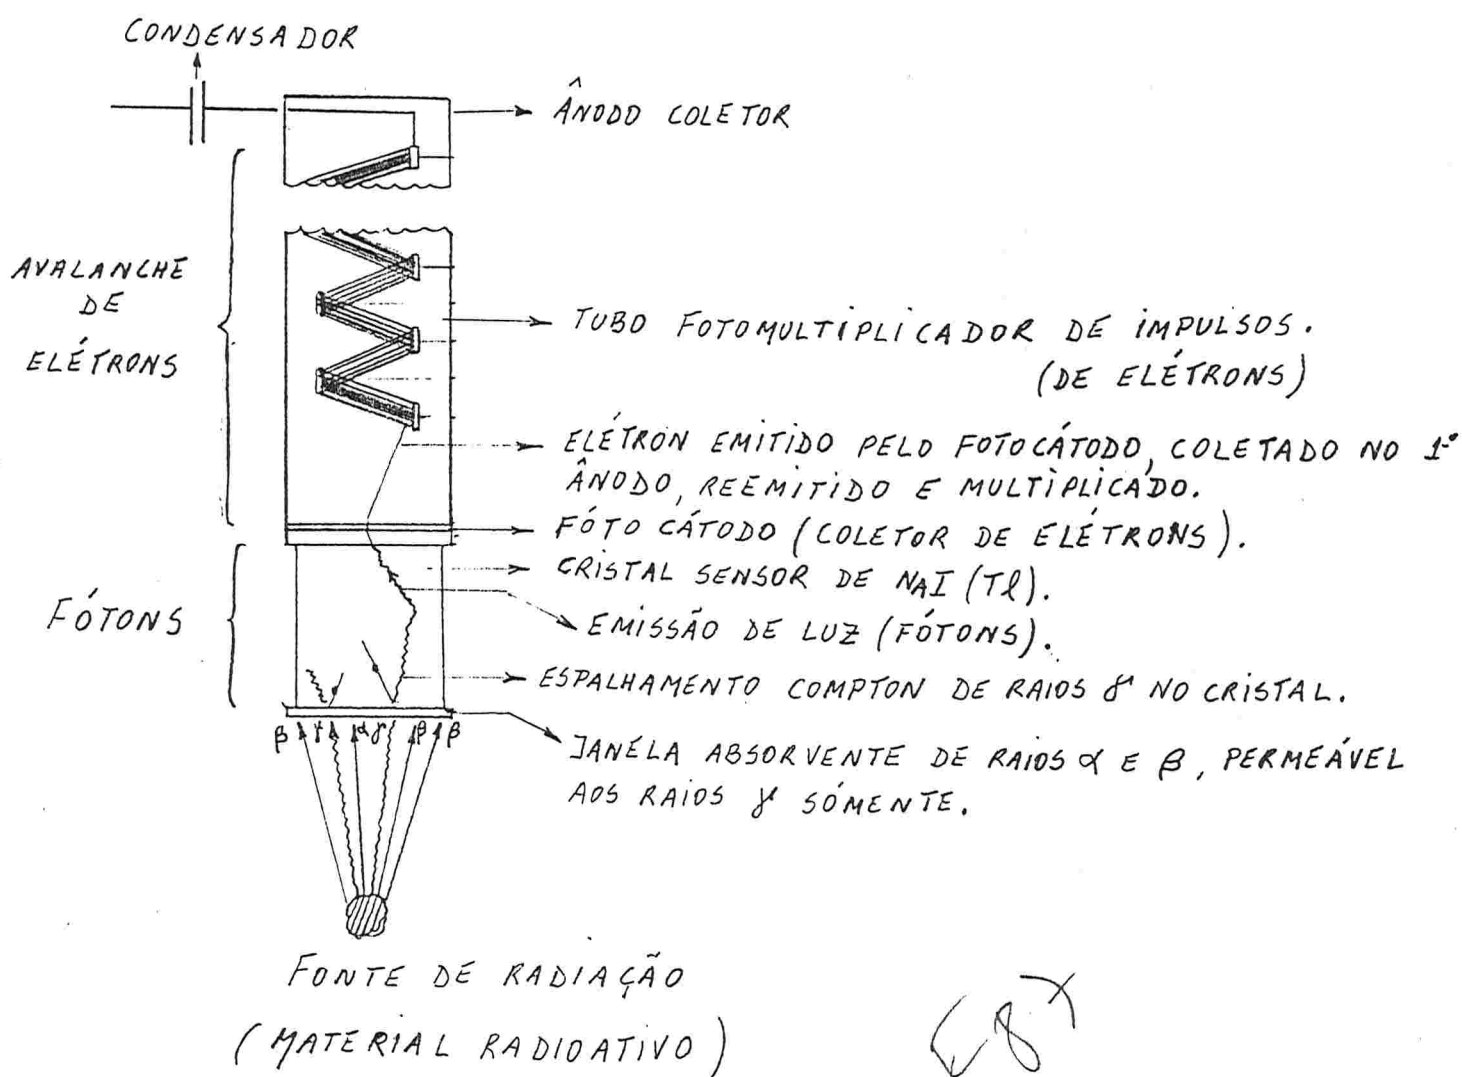 CONDENSADOR
ÂNODO COLETOR
AVALANCHE
DE
ELÉTRONS
TUBO FOTOMULTIPLICADOR DE IMPULSOS.
(DE ELÉTRONS)
ELÉTRON EMITIDO PELO FOTOCÁTODO, COLETADO NO 1º
ÂNODO, REEMITIDO E MULTIPLICADO.
FÓTO CÁTODO (COLETOR DE ELÉTRONS).
CRISTAL SENSOR DE NAI (Tl).
FÓTONS
EMISSÃO DE LUZ (FÓTONS).
ESPALHAMENTO COMPTON DE RAIOS γ NO CRISTAL.
β γ α γ β β
JANÉLA ABSORVENTE DE RAIOS α E β, PERMEÁVEL
AOS RAIOS γ SÓMENTE.
FONTE DE RADIAÇÃO
(MATERIAL RADIOATIVO)